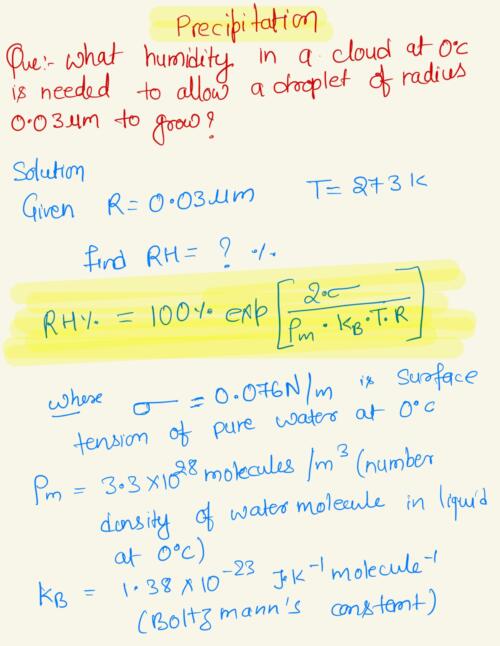 Precipitation
Que:- what humidity in a cloud at 0°c
is needed to allow a droplet of radius
0.03μm to grow?
Solution
Given R = 0.03μm T = 273 K
find RH = ? %
RH% = 100% exp [ 2·σ / ρm · kB · T · R ]
where σ = 0.076N/m is surface
tension of pure water at 0°c
ρm = 3.3 × 10^28 molecules /m³ (number
density of water molecule in liquid
at 0°C)
kB = 1.38 × 10^-23 J·K^-1 molecule^-1
(Boltzmann's constant)